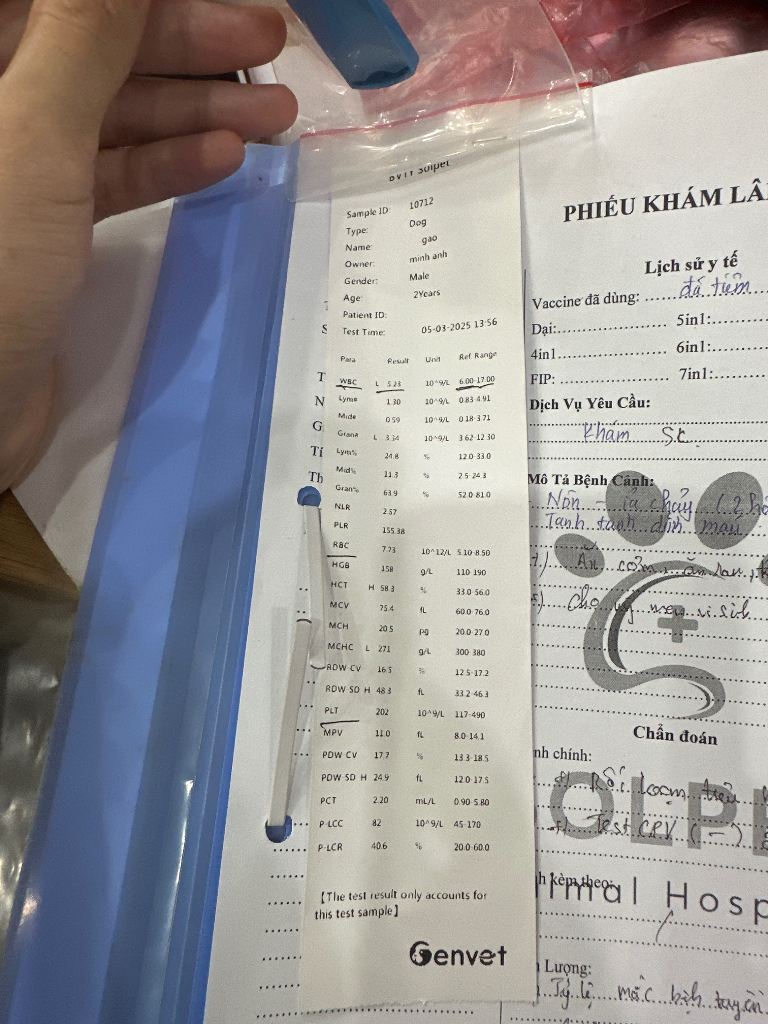 Sample ID: 10712
Type: Dog
Name: gao
Owner: minh anh
Gender: Male
Age: 2Years
Patient ID:
Test Time: 05-03-2025 13:56
Para Result Unit Ref Range
WBC L 5.23 10^9/L 6.00-17.00
Lym# 1.30 10^9/L 0.83-4.91
Mid# 0.59 10^9/L 0.18-3.71
Gran# L 3.34 10^9/L 3.62-12.30
Lym% 24.8 % 12.0-33.0
Mid% 11.3 % 2.5-24.3
Gran% 63.9 % 52.0-81.0
NLR 2.57
PLR 155.38
RBC 7.73 10^12/L 5.10-8.50
HGB 158 g/L 110-190
HCT H 58.3 % 33.0-56.0
MCV 75.4 fL 60.0-76.0
MCH 20.5 pg 20.0-27.0
MCHC L 271 g/L 300-380
RDW-CV 16.5 % 12.5-17.2
RDW-SD H 48.3 fL 33.2-46.3
PLT 202 10^9/L 117-490
MPV 11.0 fL 8.0-14.1
PDW-CV 17.7 % 13.3-18.5
PDW-SD H 24.9 fL 12.0-17.5
PCT 2.20 mL/L 0.90-5.80
P-LCC 82 10^9/L 45-170
P-LCR 40.6 % 20.0-60.0
【The test result only accounts for
this test sample】
Genvet
PHIẾU KHÁM LÂ
Lịch sử y tế
Vaccine đã dùng: đã tiêm
Dại: 5in1:
4in1 6in1:
FIP: 7in1:
Dịch Vụ Yêu Cầu:
Khám SC
Mô Tả Bệnh Cảnh:
Nôn - ỉa chảy
Tanh tanh
Ăn cơm, ăn
Cho uống men vi sinh
Chẩn đoán
nh chính:
Rối loạn tiêu
Test CPV (-)
h kèm theo:
imal Hosp
Lượng:
Tỷ lệ mắc bệnh